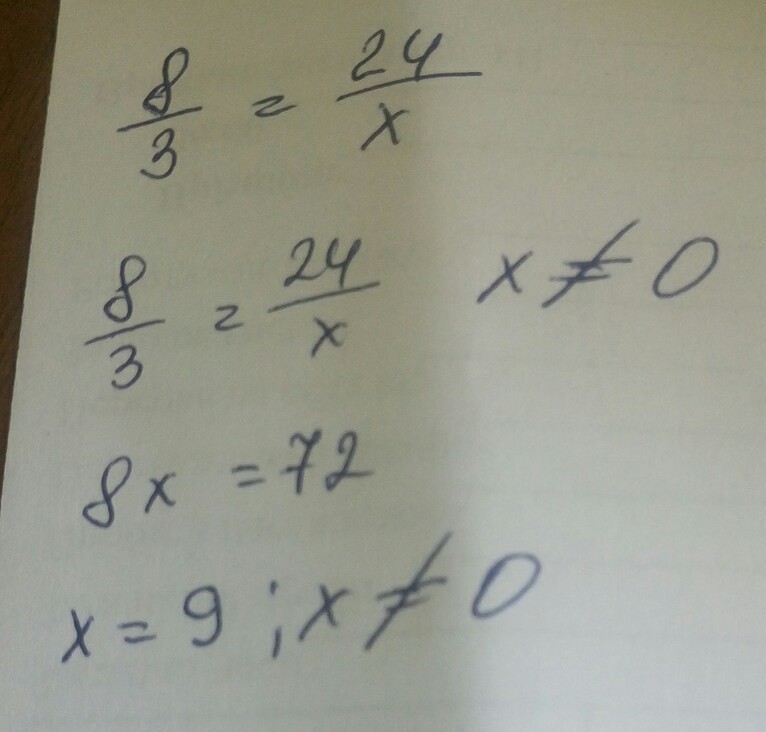 8/3 = 24/x
8/3 = 24/x x ≠ 0
8x = 72
x = 9 ; x ≠ 0